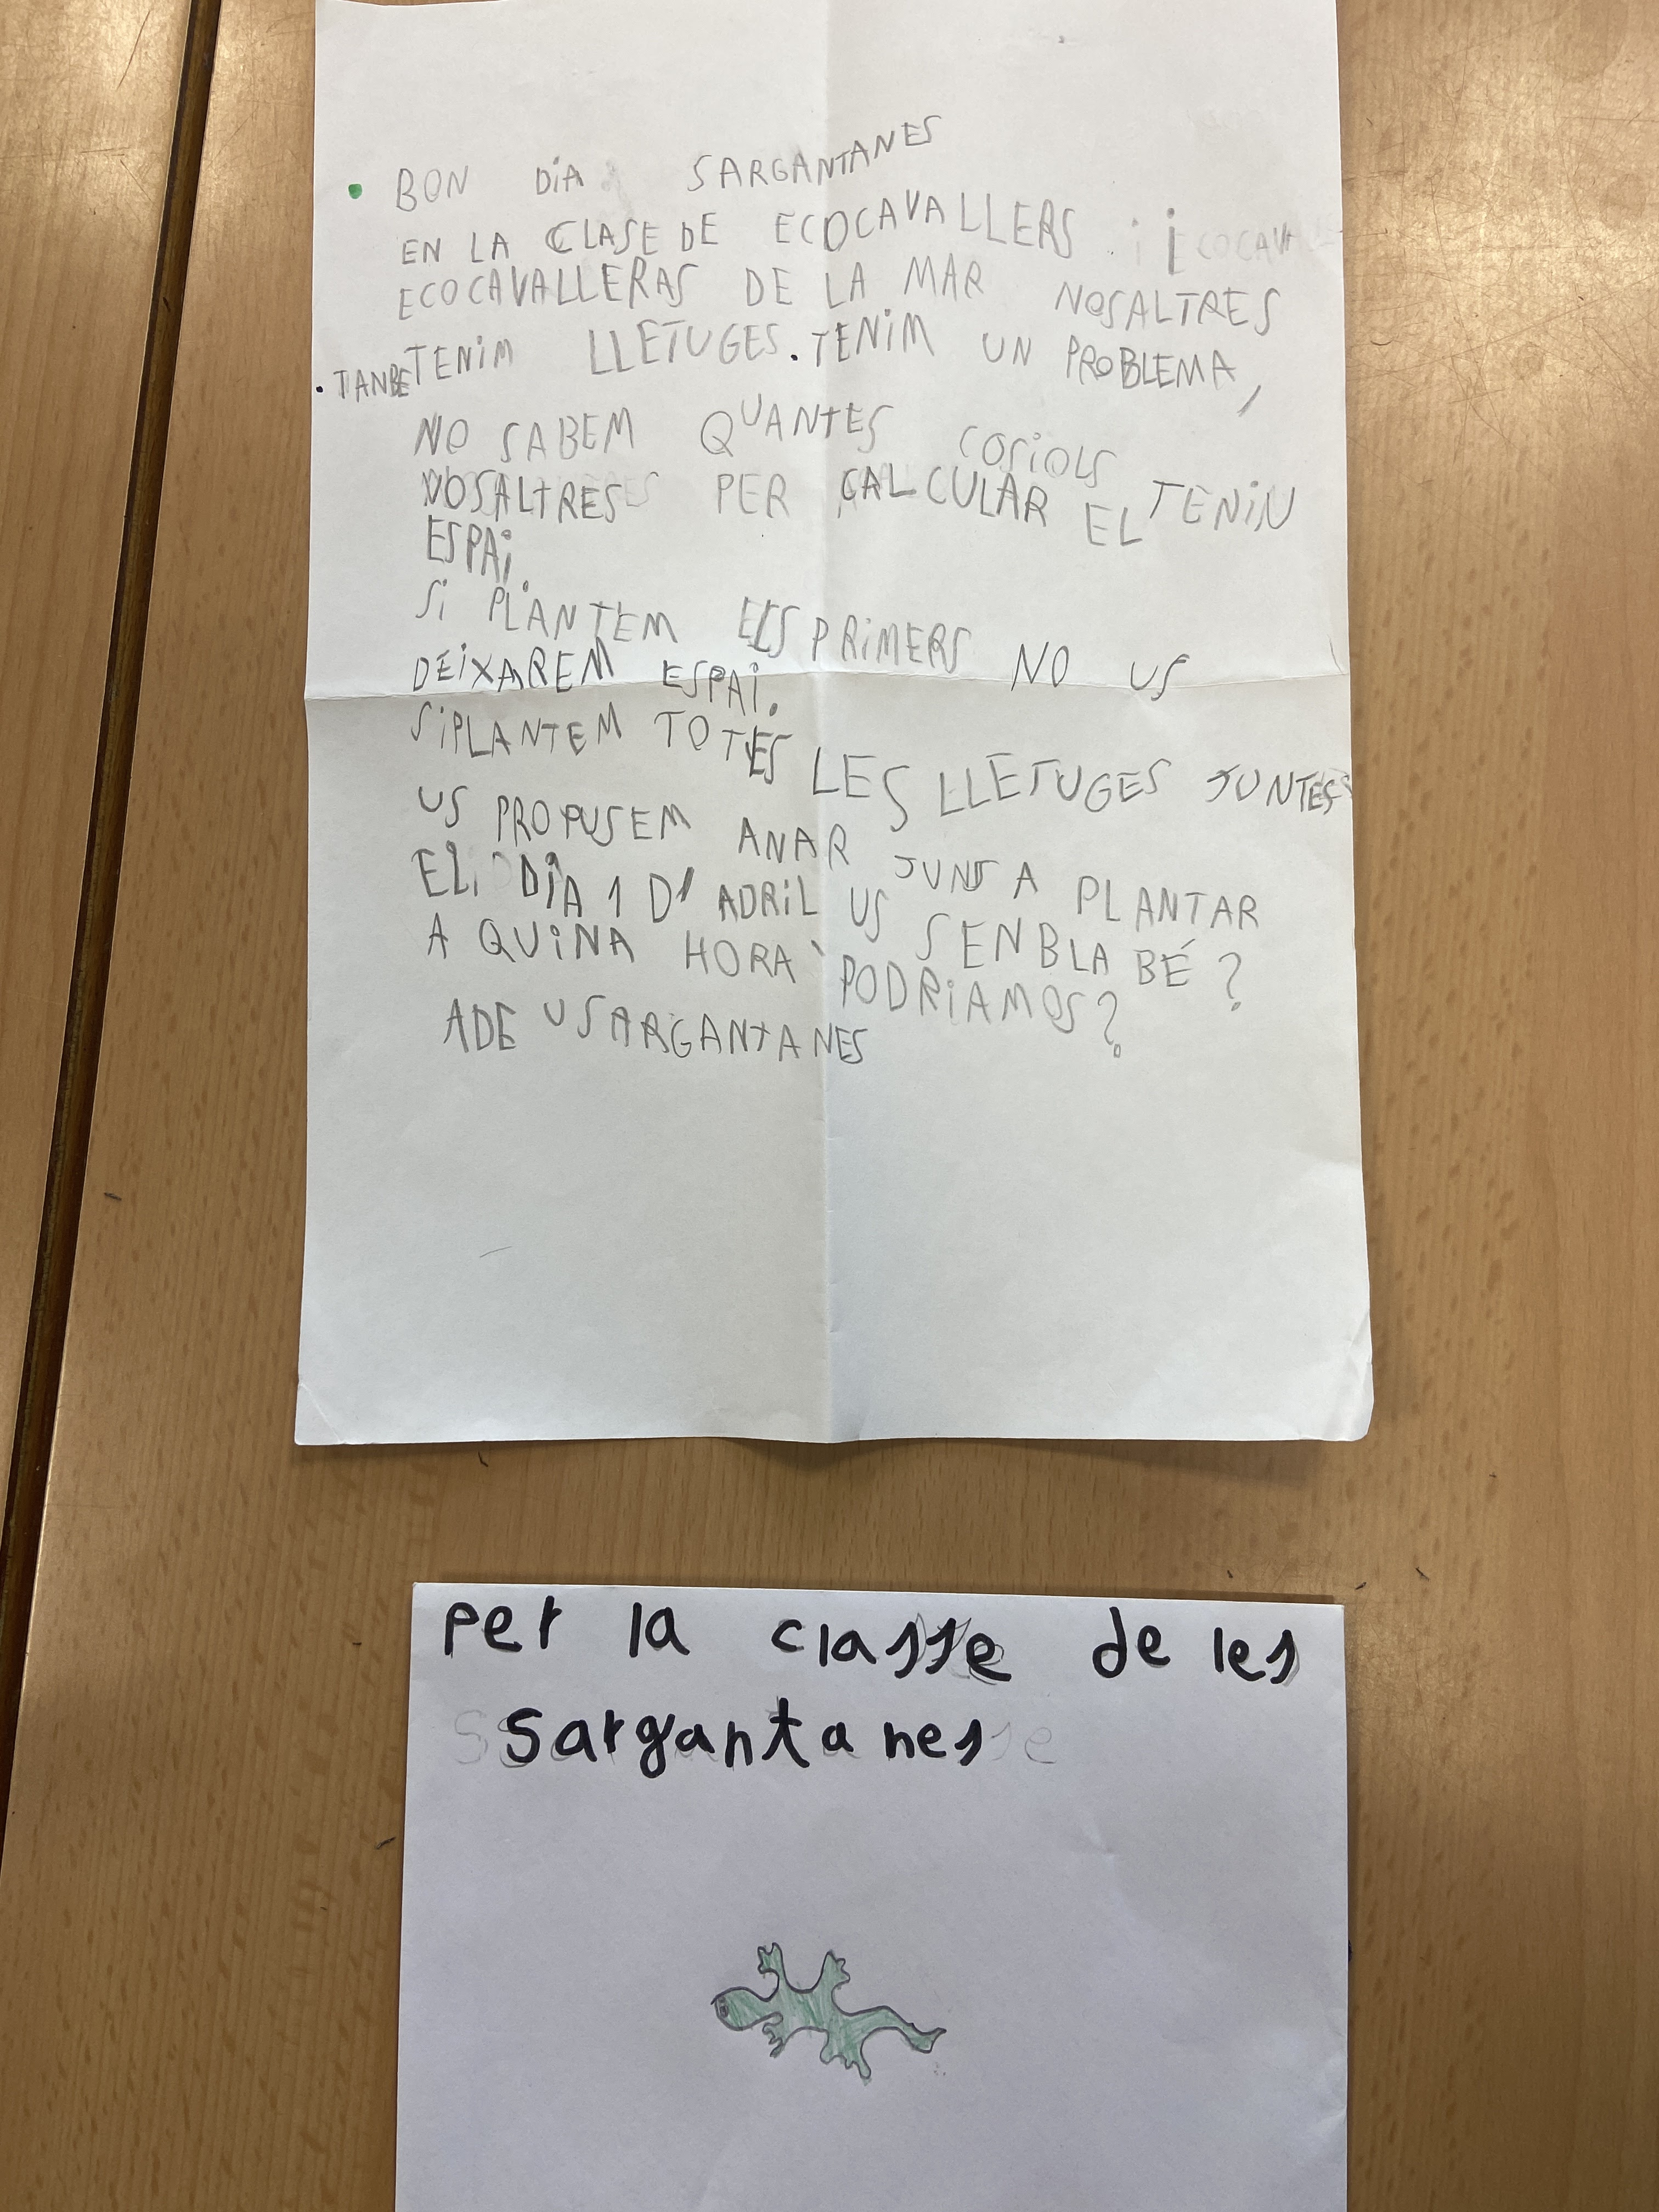 BON DIA SARGANTANES
EN LA CLASE DE ECOCAVALLERS I
ECOCAVALLERAS DE LA MAR NOSALTRES
.TANBE TENIM LLETUGES. TENIM UN PROBLEMA,
NO SABEM QUANTES COSIOLS
NOSALTRES PER CALCULAR EL TENIN
ESPAI.
SI PLANTEM ELS PRIMERS NO US
DEIXAREM ESPAI.
SI PLANTEM TOTES LES LLETUGES JUNTES
US PROPUSEM ANAR JUNS A PLANTAR
EL DIA 1 D' ADRIL US SENBLA BÉ?
A QUINA HORA PODRIAMOS?
ADEU SARGANTANES
per la classe de les
Sargantanes